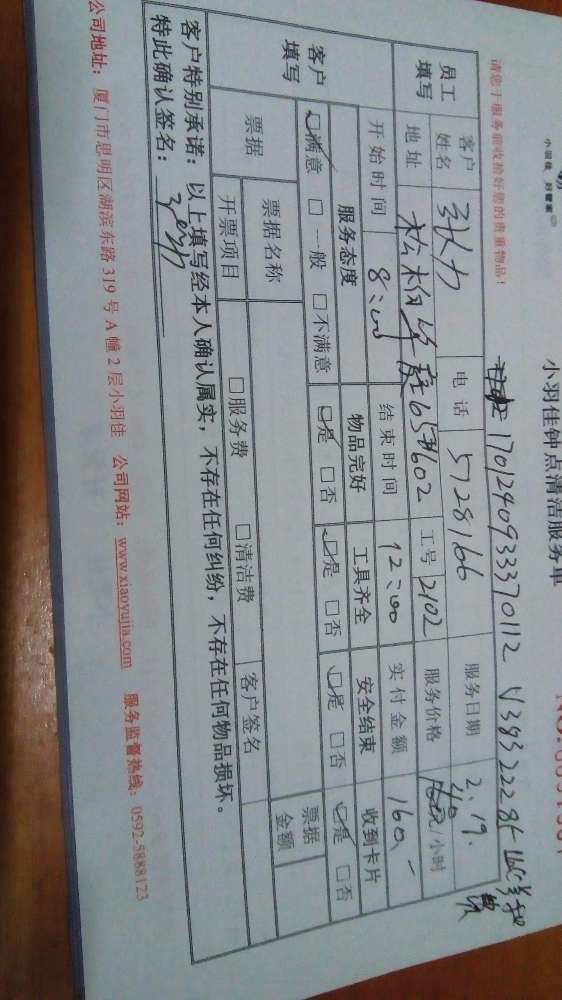 小羽佳钟点清洁服务单
请您于服务前收拾好您的贵重物品!
17012409333370112
员工填写 客户姓名 张力 电话 5728166 服务日期 2.19.
地址 工号 2102 服务价格 40 /小时
开始时间 8:00 结束时间 12:00 实付金额 160.-
客户填写 服务态度 物品完好 工具齐全 安全结束 收到卡片
☑满意 □一般 □不满意 ☑是 □否 ☑是 □否 ☑是 □否 ☑是 □否
票据 票据名称 票据金额
开票项目 □服务费 □清洁费 客户签名
客户特别承诺:以上填写经本人确认属实,不存在任何纠纷,不存在任何物品损坏。
特此确认签名:
公司地址:厦门市思明区湖滨东路319号A幢2层小羽佳 公司网站:www.xiaoyujia.com 服务监督热线:0592-5888123